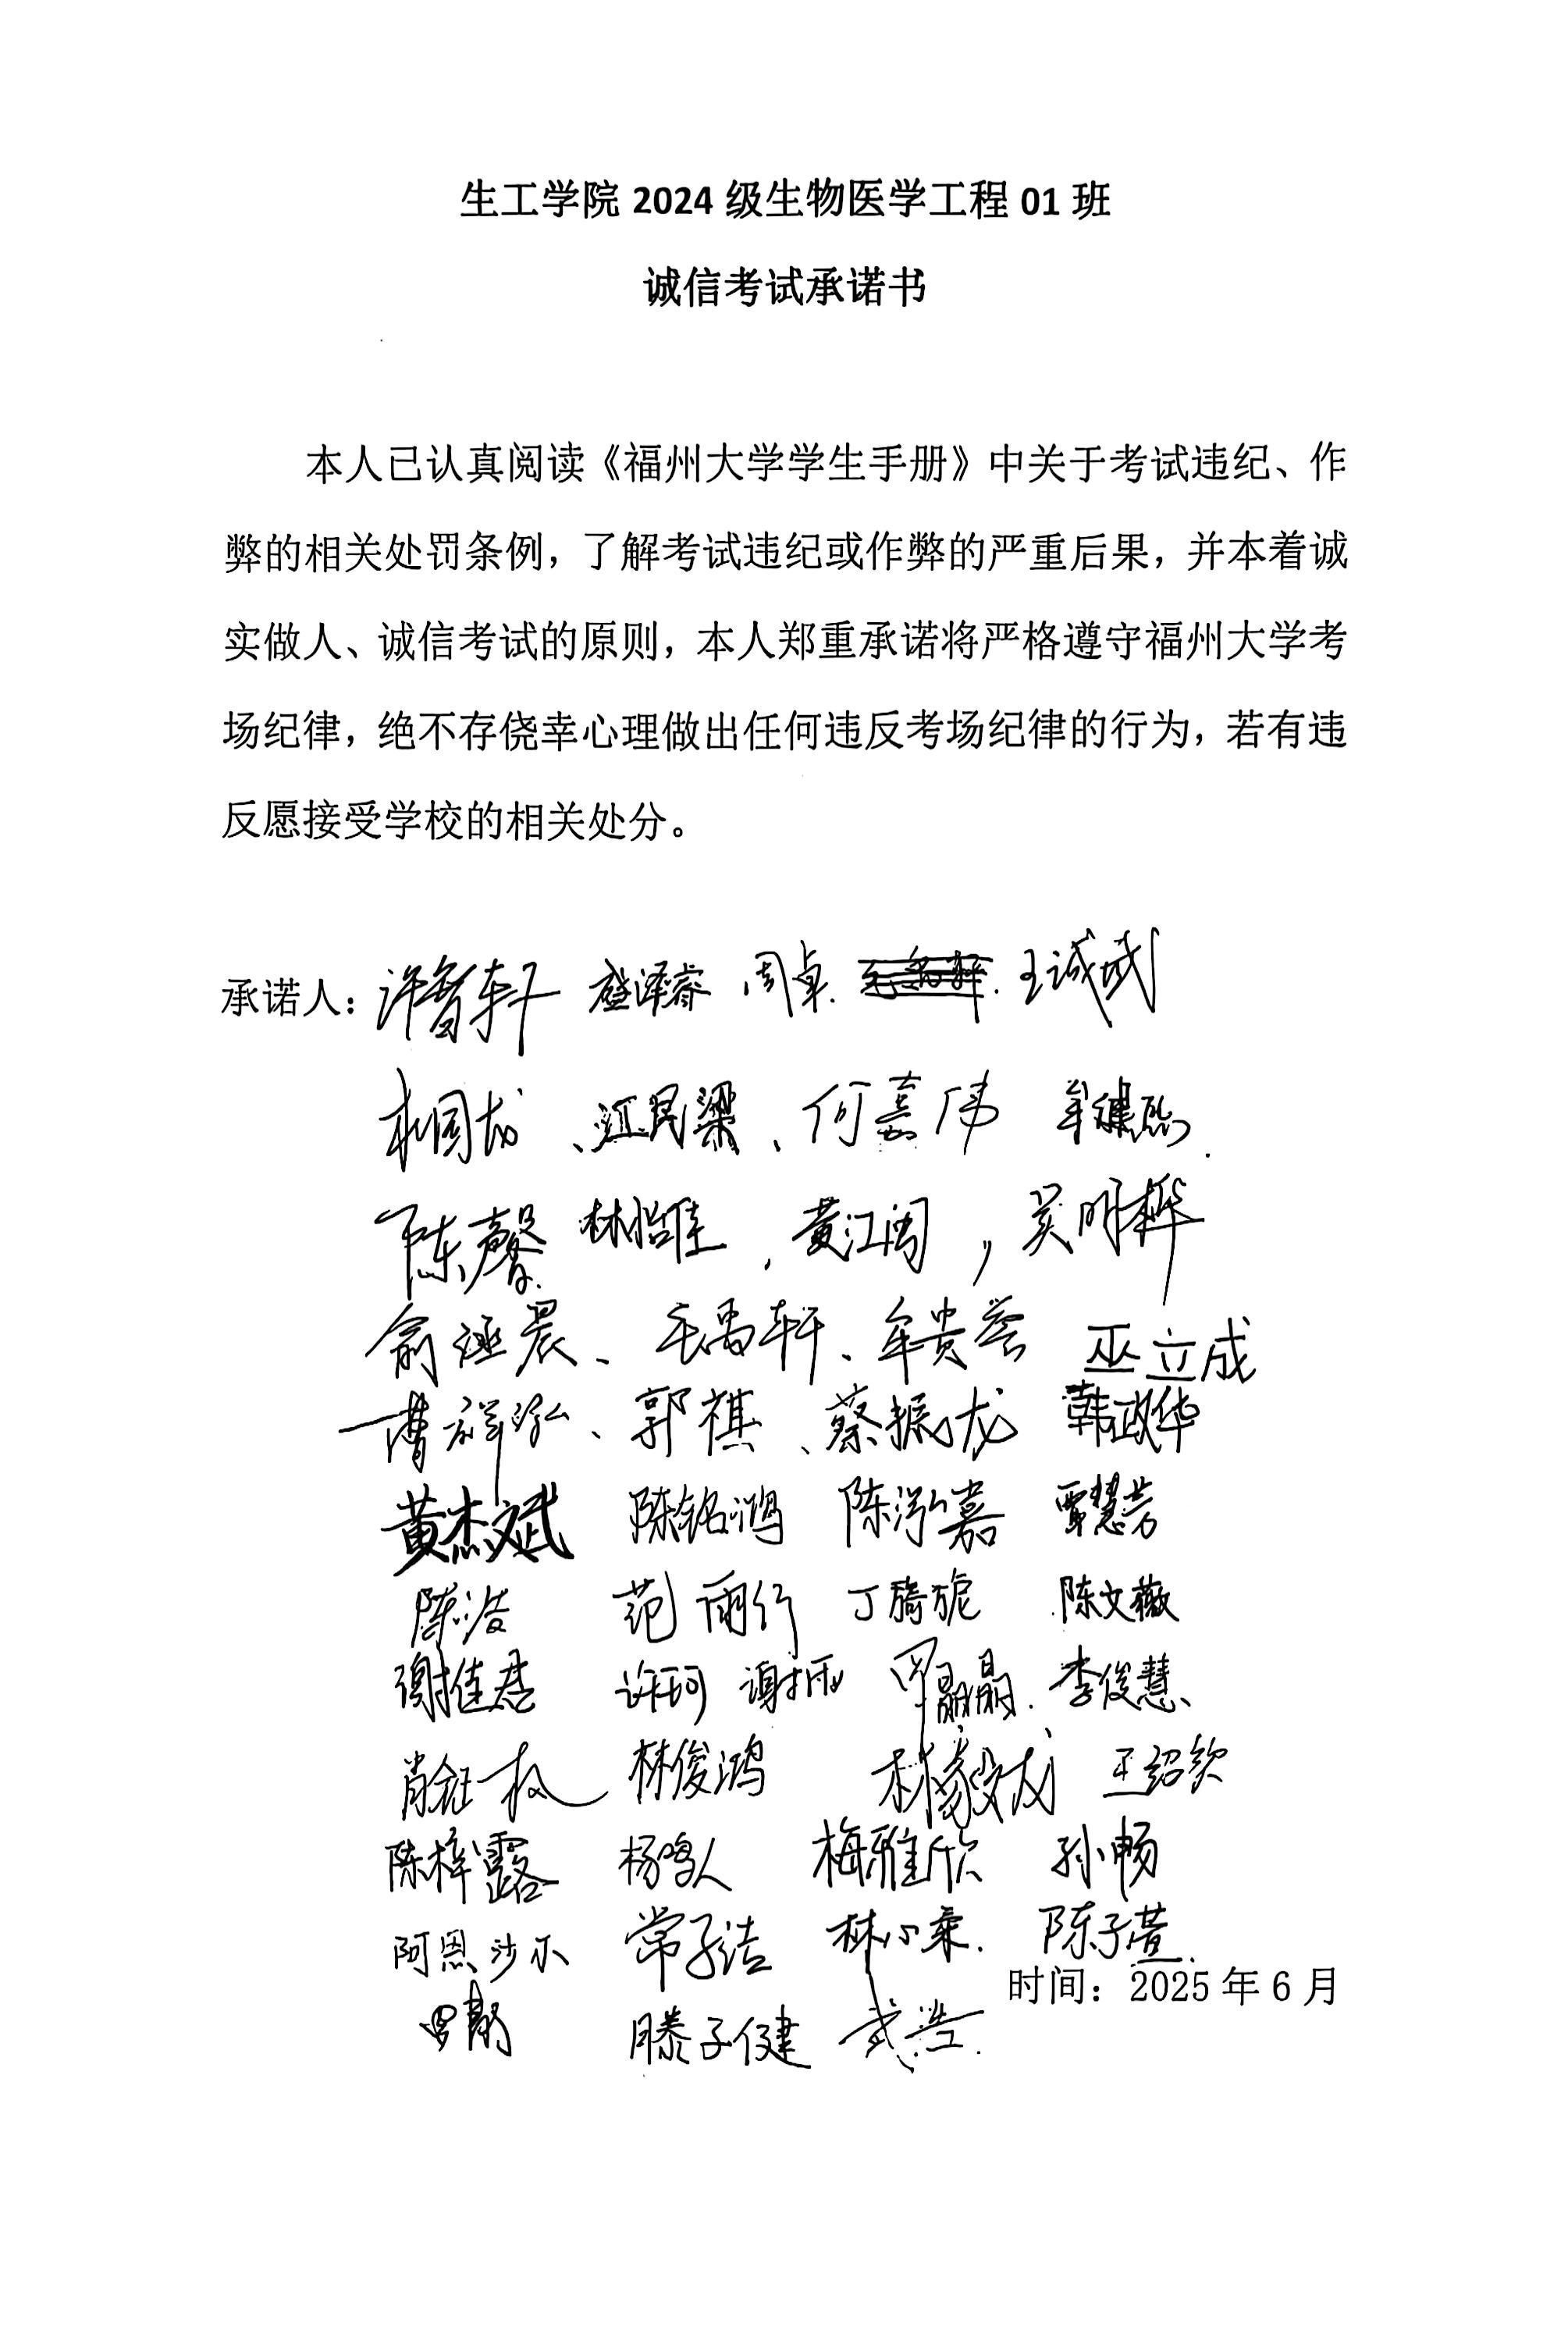 生工学院 2024 级生物医学工程 01 班
诚信考试承诺书
本人已认真阅读《福州大学学生手册》中关于考试违纪、作
弊的相关处罚条例，了解考试违纪或作弊的严重后果，并本着诚
实做人、诚信考试的原则，本人郑重承诺将严格遵守福州大学考
场纪律，绝不存侥幸心理做出任何违反考场纪律的行为，若有违
反愿接受学校的相关处分。
承诺人：许智轩 盛泽睿 周卓. 王诚斌
、江民梁、何嘉伟
陈馨. 林怡佳, 黄江闽, 吴明桦
俞逊晨、毛禹轩、牟贵誉 巫立成
曹祥泓、郭祺、蔡振龙 韩政华
黄杰斌 陈铭鸿 陈泓嘉 覃慧芳
陈浩 范雨行 丁旖旎 陈文薇
谢佳君 许珂 谢雨 罗晶晶. 李俊慧
肖钰 林俊鸿 林毅龙 王绍钦
陈梓露 杨鸣人 梅雅欣 孙畅
阿恩沙尔 常子洁 林小乘. 陈子萱.
时间：2025 年 6 月
滕子健 武浩.